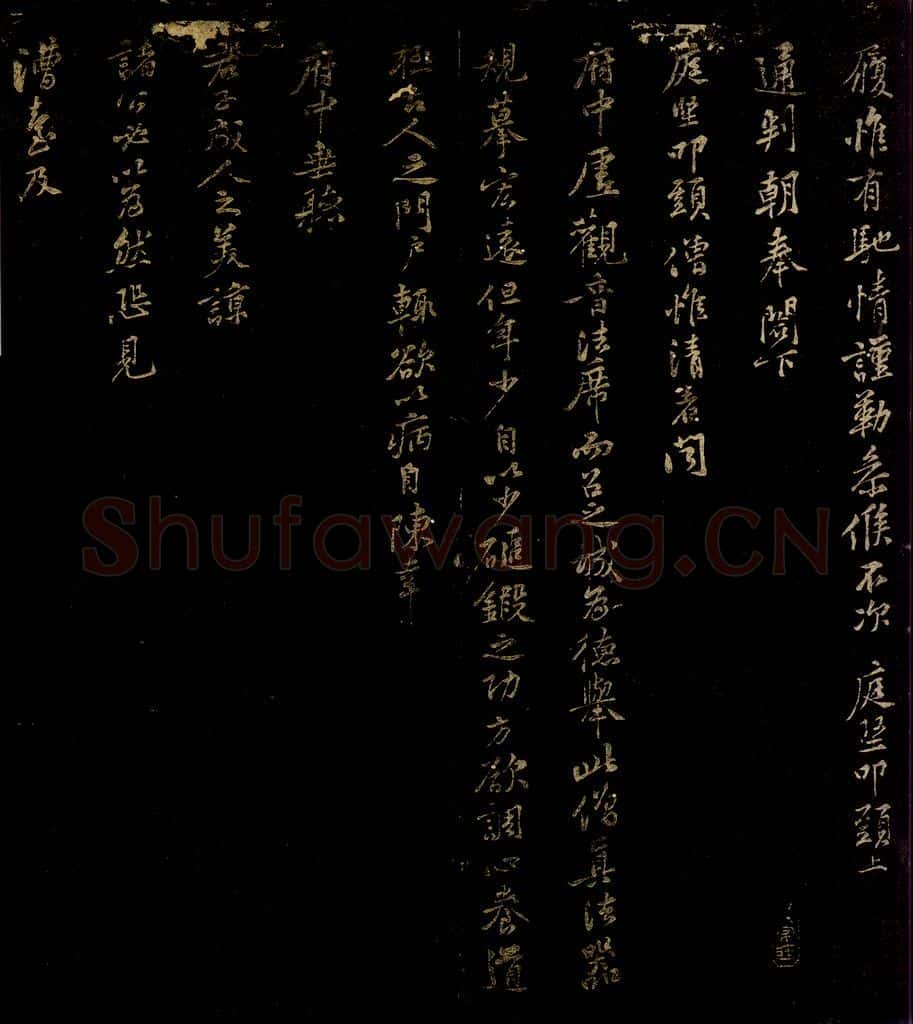 履惟有馳情謹勒參候不次 庭堅叩頭上
通判朝奉閤下
庭堅叩頭僧惟清者聞
府中虛觀音法席而召之誠為德舉此僧真法器
規摹宏遠但年少自以少磓鍛之功方欲調心養道
人之門戶輒欲以病自陳幸
府中垂聽
君子成人之美諒
諸公必以為然恐見
漕臺及
Shufawang.CN